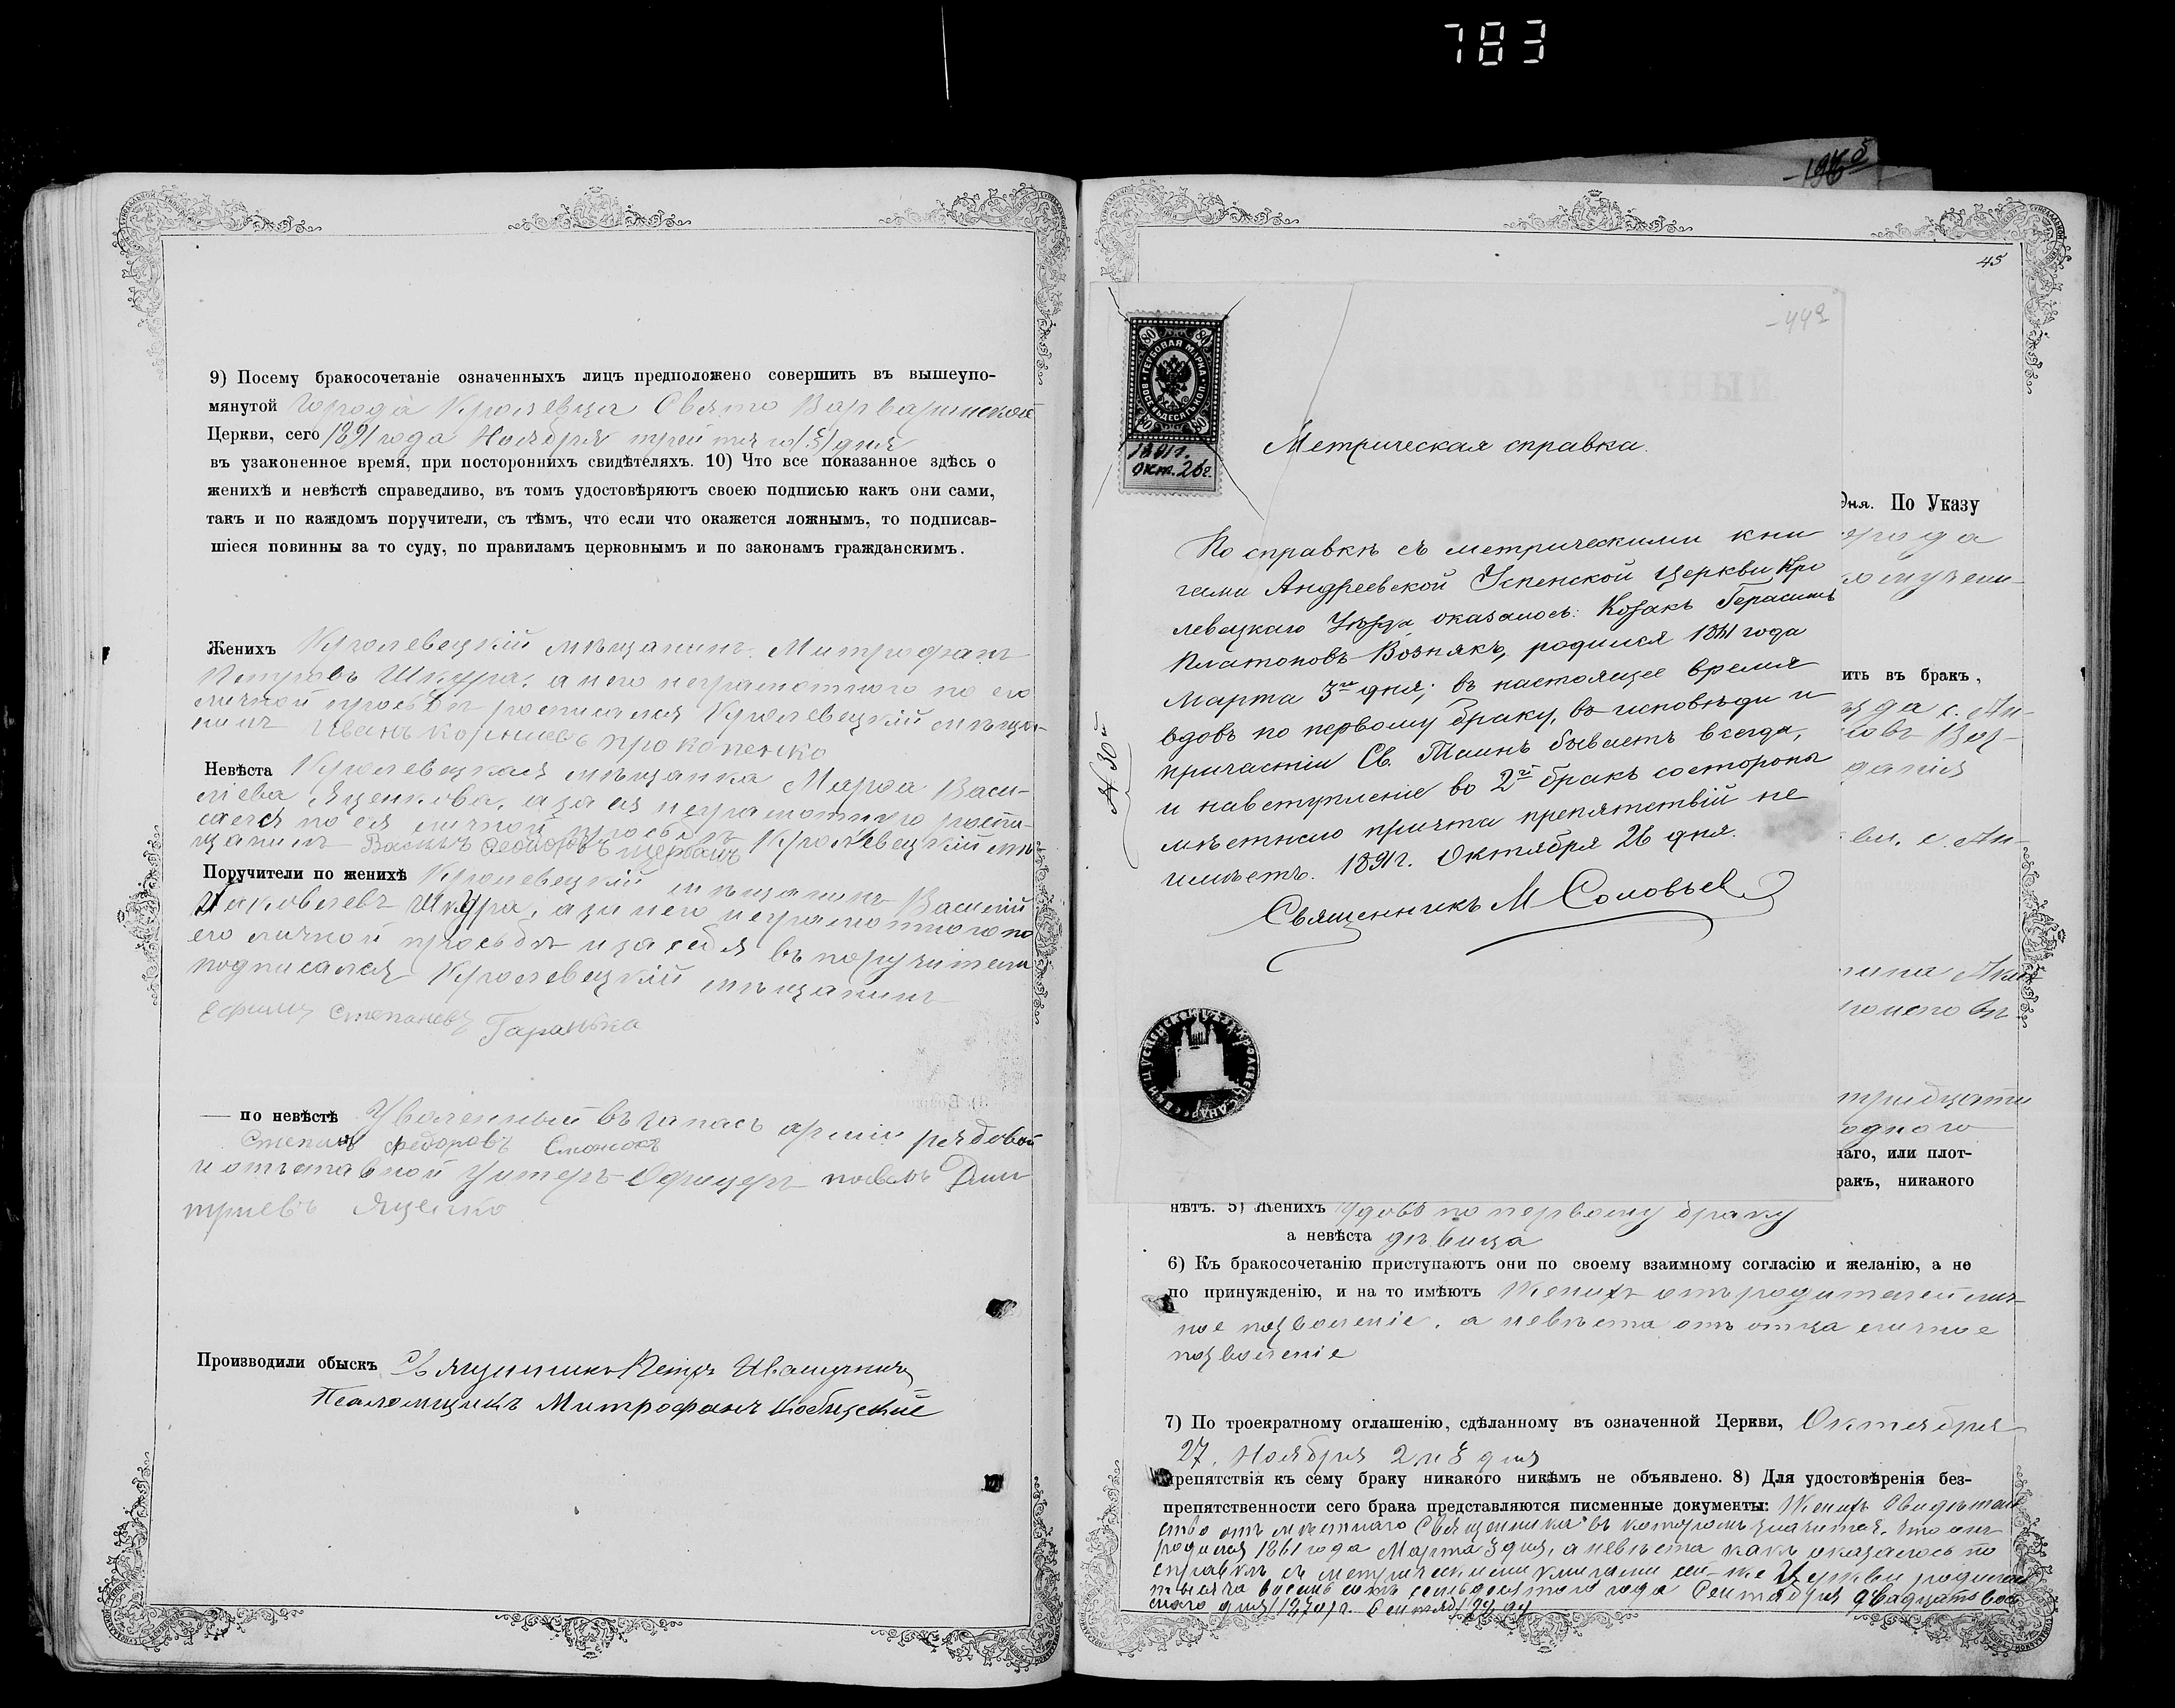 783
9) Посему бракосочетаніе означенныхъ лицъ предположено совершить въ вышеупо-
мянутой города Кролевца Свято Варваринской
Церкви, сего 1891 года Ноября третьяго /3/ дня
въ узаконенное время, при постороннихъ свидѣтеляхъ. 10) Что все показанное здѣсь о
женихѣ и невѣстѣ справедливо, въ томъ удостовѣряютъ своею подписью какъ они сами,
такъ и по каждомъ поручители, съ тѣмъ, что если что окажется ложнымъ, то подписав-
шіеся повинны за то суду, по правиламъ церковнымъ и по законамъ гражданскимъ.
Женихъ Кролевецкій мѣщанинъ Митрофанъ
Петровъ Шкура, а него неграмотного по его
личной просьбѣ росписался Кролевецкій мѣща-
нинъ Иванъ Корніевъ Прокопенко
Невѣста Кролевецкая мѣщанка Марѳа Васи-
ліева Яценкова, а за ея неграмотную роспи-
сался по ея личной просьбѣ Кролевецкій мѣ
щанинъ Щербакъ
Поручители по женихѣ Кролевецкій мѣщанинъ Василій
Яковлевъ Шкура, а за него неграмотного по
его личной просьбѣ и за себя въ поручители
подписался Кролевецкій мѣщанинъ
Ефимъ Степановъ Гаранька
— по невѣстѣ Уволенный въ запасъ арміи рядовой
Степанъ Федоровъ
и отставной Унтеръ-Офицеръ Дми
тріевъ Яценко
Производили обыскъ Священникъ Петръ
Псаломщикъ Митрофанъ
45
-442
1891г.
Окт. 26г.
ГЕРБОВАЯ МАРКА
ВОСЕМЬДЕСЯТЪ КОП.
80
Метрическая справка.
По справкѣ съ метрическими кни
гами Андреевской Успенской Церкви Кро
левецкаго Уѣзда оказалось: Козакъ Герасимъ
Платоновъ Вознякъ, родился 1861 года
Марта 3го дня; въ настоящее время
вдовъ по первому браку, въ исповѣди и
причастіи Св. Таинъ бываетъ всегда,
и навступленіе во 2й бракъ состороны
мѣстнаго причта препятствій не
имѣетъ. 1891г. Октября 26 дня.
Священникъ М Соловьев
дня. По Указу
ить въ бракъ,
наго, или плот-
ракъ, никакого
нѣтъ. 5) Женихъ вдовъ по первому браку
а невѣста дѣвица
6) Къ бракосочетанію приступаютъ они по своему взаимному согласію и желанію, а не
по принужденію, и на то имѣютъ Женихъ отъ родителей лич-
ное позволеніе, а невѣста отъ отца личное
позволеніе
7) По троекратному оглашенію, сдѣланному въ означенной Церкви, Октября
27, Ноября 2 и 3 дня
препятствія къ сему браку никакого никѣмъ не объявлено. 8) Для удостовѣренія без-
препятственности сего брака представляются писменные документы: Женихъ Свидѣтель
ство отъ мѣстнаго Священника въ которомъ значится, что онъ
родился 1861 года Марта 3 дня, а невѣста какъ оказалось по
справкѣ съ метрическими книгами сей-же Церкви родилась
тысяча восемь сотъ семьдесятого года Сентября двадцать
дня /1870 г. Сентяб